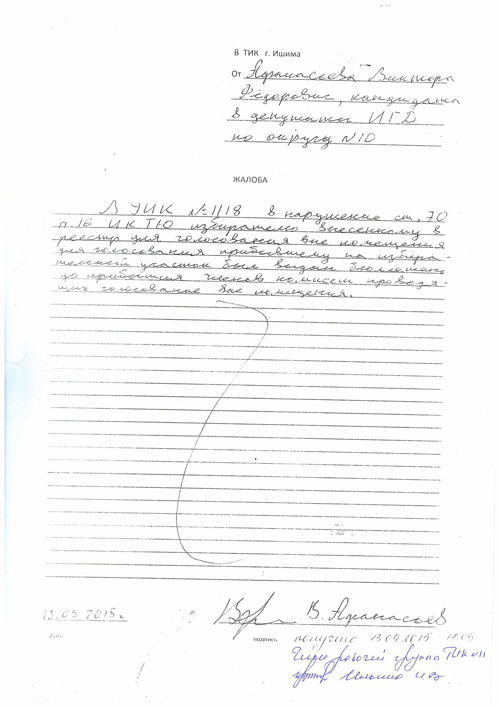 В ТИК г. Ишима
От Афанасьева Виктора
Фёдоровис, кандидата
в депутаты ИГД
по округу N10
ЖАЛОБА
В УИК №1118 в нарушение ст. 70
п.16 ИКТЮ избирателю внесенному в
реестр для голосования вне помещения
для голосования прибывшему на избира-
тельный участок был выдан бюллетень
до прибытия членов комисси проводя-
щих голосование вне помещения.
13.09.2015г.
В. Афанасьев
подпись
получено 13.09.2015
рабочей группы